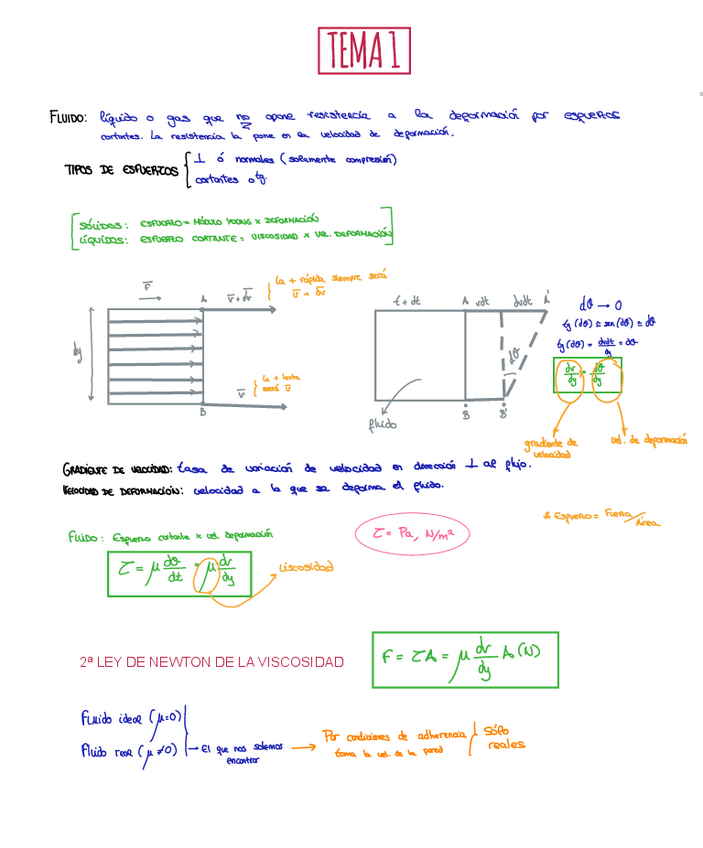 TEMA 1
FLUIDO: líquido o gas que no opone resistencia a la deformación por esfuerzos
cortantes. La resistencia la pone en la velocidad de deformación.
TIPOS DE ESFUERZOS { ⊥ ó normales (solamente compresión)
cortantes o tg.
SÓLIDOS: ESFUERZO = MÓDULO YOUNG x DEFORMACIÓN
LÍQUIDOS: ESFUERZO CORTANTE = VISCOSIDAD x VEL. DEFORMACIÓN
F
A
v + dv
La + rápida siempre será
v + dv
dy
v
La + lenta
será v
B
t + dt
A
vdt
dvdt
A'
dθ
fluido
B
B'
dθ → 0
tg (dθ) ≃ sen (dθ) ≃ dθ
tg (dθ) = dvdt/dy = dθ
dv/dy = dθ/dy
gradiente de
velocidad
vel. de deformación
GRADIENTE DE VELOCIDAD: tasa de variación de velocidad en dirección ⊥ al flujo.
VELOCIDAD DE DEFORMACIÓN: velocidad a la que se deforma el fluido.
* ESFUERZO = Fuerza/Área
FLUIDO: Esfuerzo cortante x vel. deformación
τ = Pa, N/m²
τ = μ dθ/dt = μ dv/dy
viscosidad
2ª LEY DE NEWTON DE LA VISCOSIDAD
F = τA = μ dv/dy A (N)
Fluido ideal (μ=0)
Fluido real (μ≠0) → El que nos solemos
encontrar
→ Por condiciones de adherencia
toma la vel. de la pared
Sólo
reales